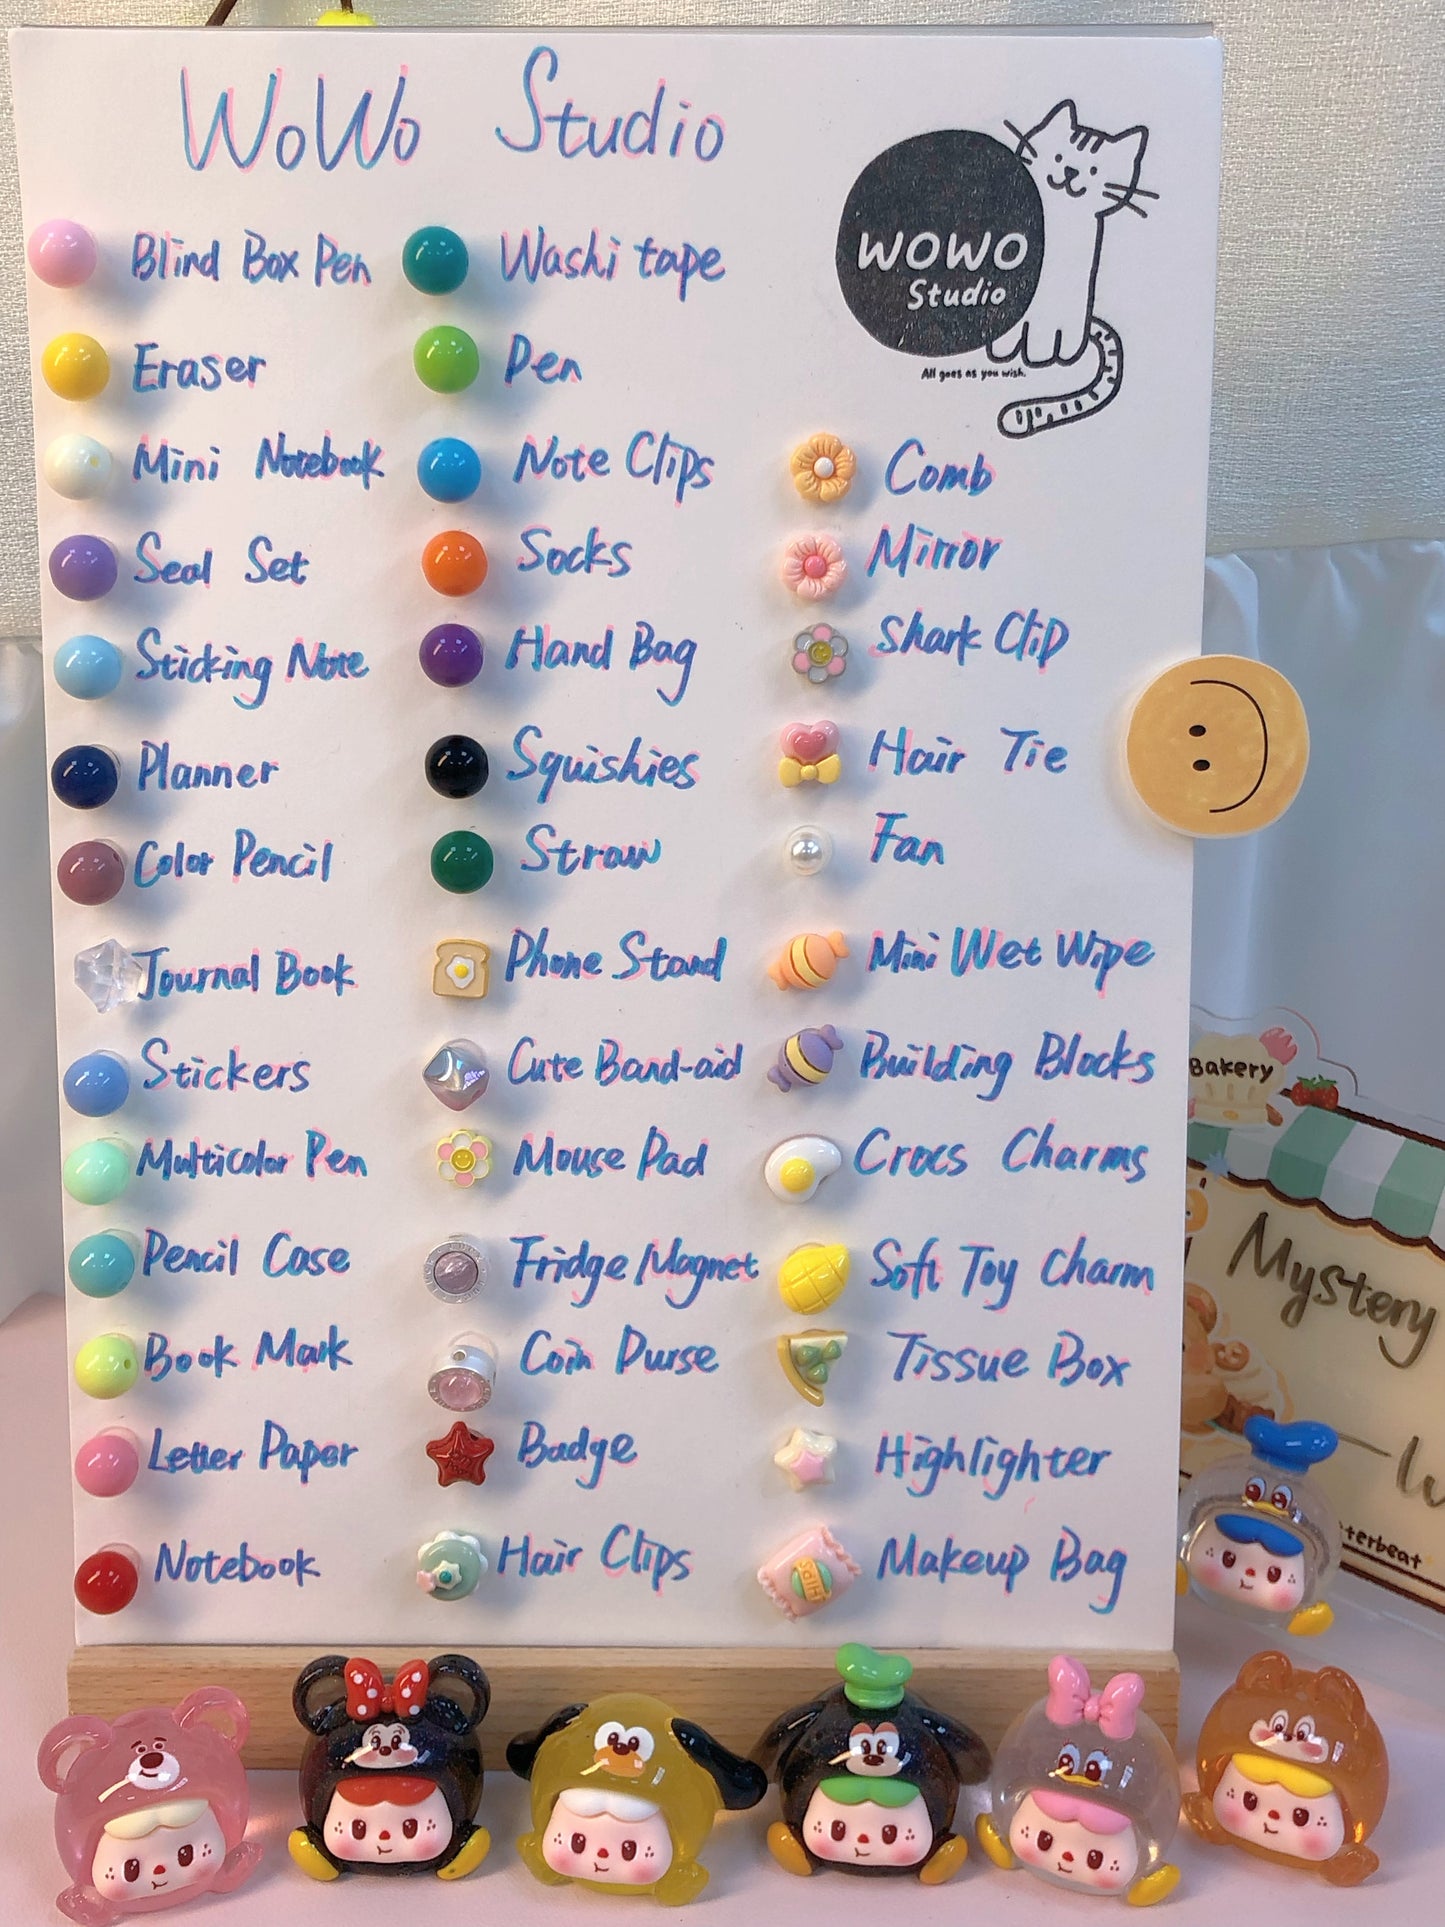 WoWo Studio
WOWO
Studio
All goes as you wish.
Blind Box Pen
Eraser
Mini Notebook
Seal Set
Sticking Note
Planner
Color Pencil
Journal Book
Stickers
Multicolor Pen
Pencil Case
Book Mark
Letter Paper
Notebook
Washi tape
Pen
Note Clips
Socks
Hand Bag
Squishies
Straw
Phone Stand
Cute Band-aid
Mouse Pad
Fridge Magnet
Coin Purse
Badge
Hair Clips
Comb
Mirror
Shark Clip
Hair Tie
Fan
Mini Wet Wipe
Building Blocks
Crocs Charms
Soft Toy Charm
Tissue Box
Highlighter
Makeup Bag
CHIPS
Bakery
Mystery